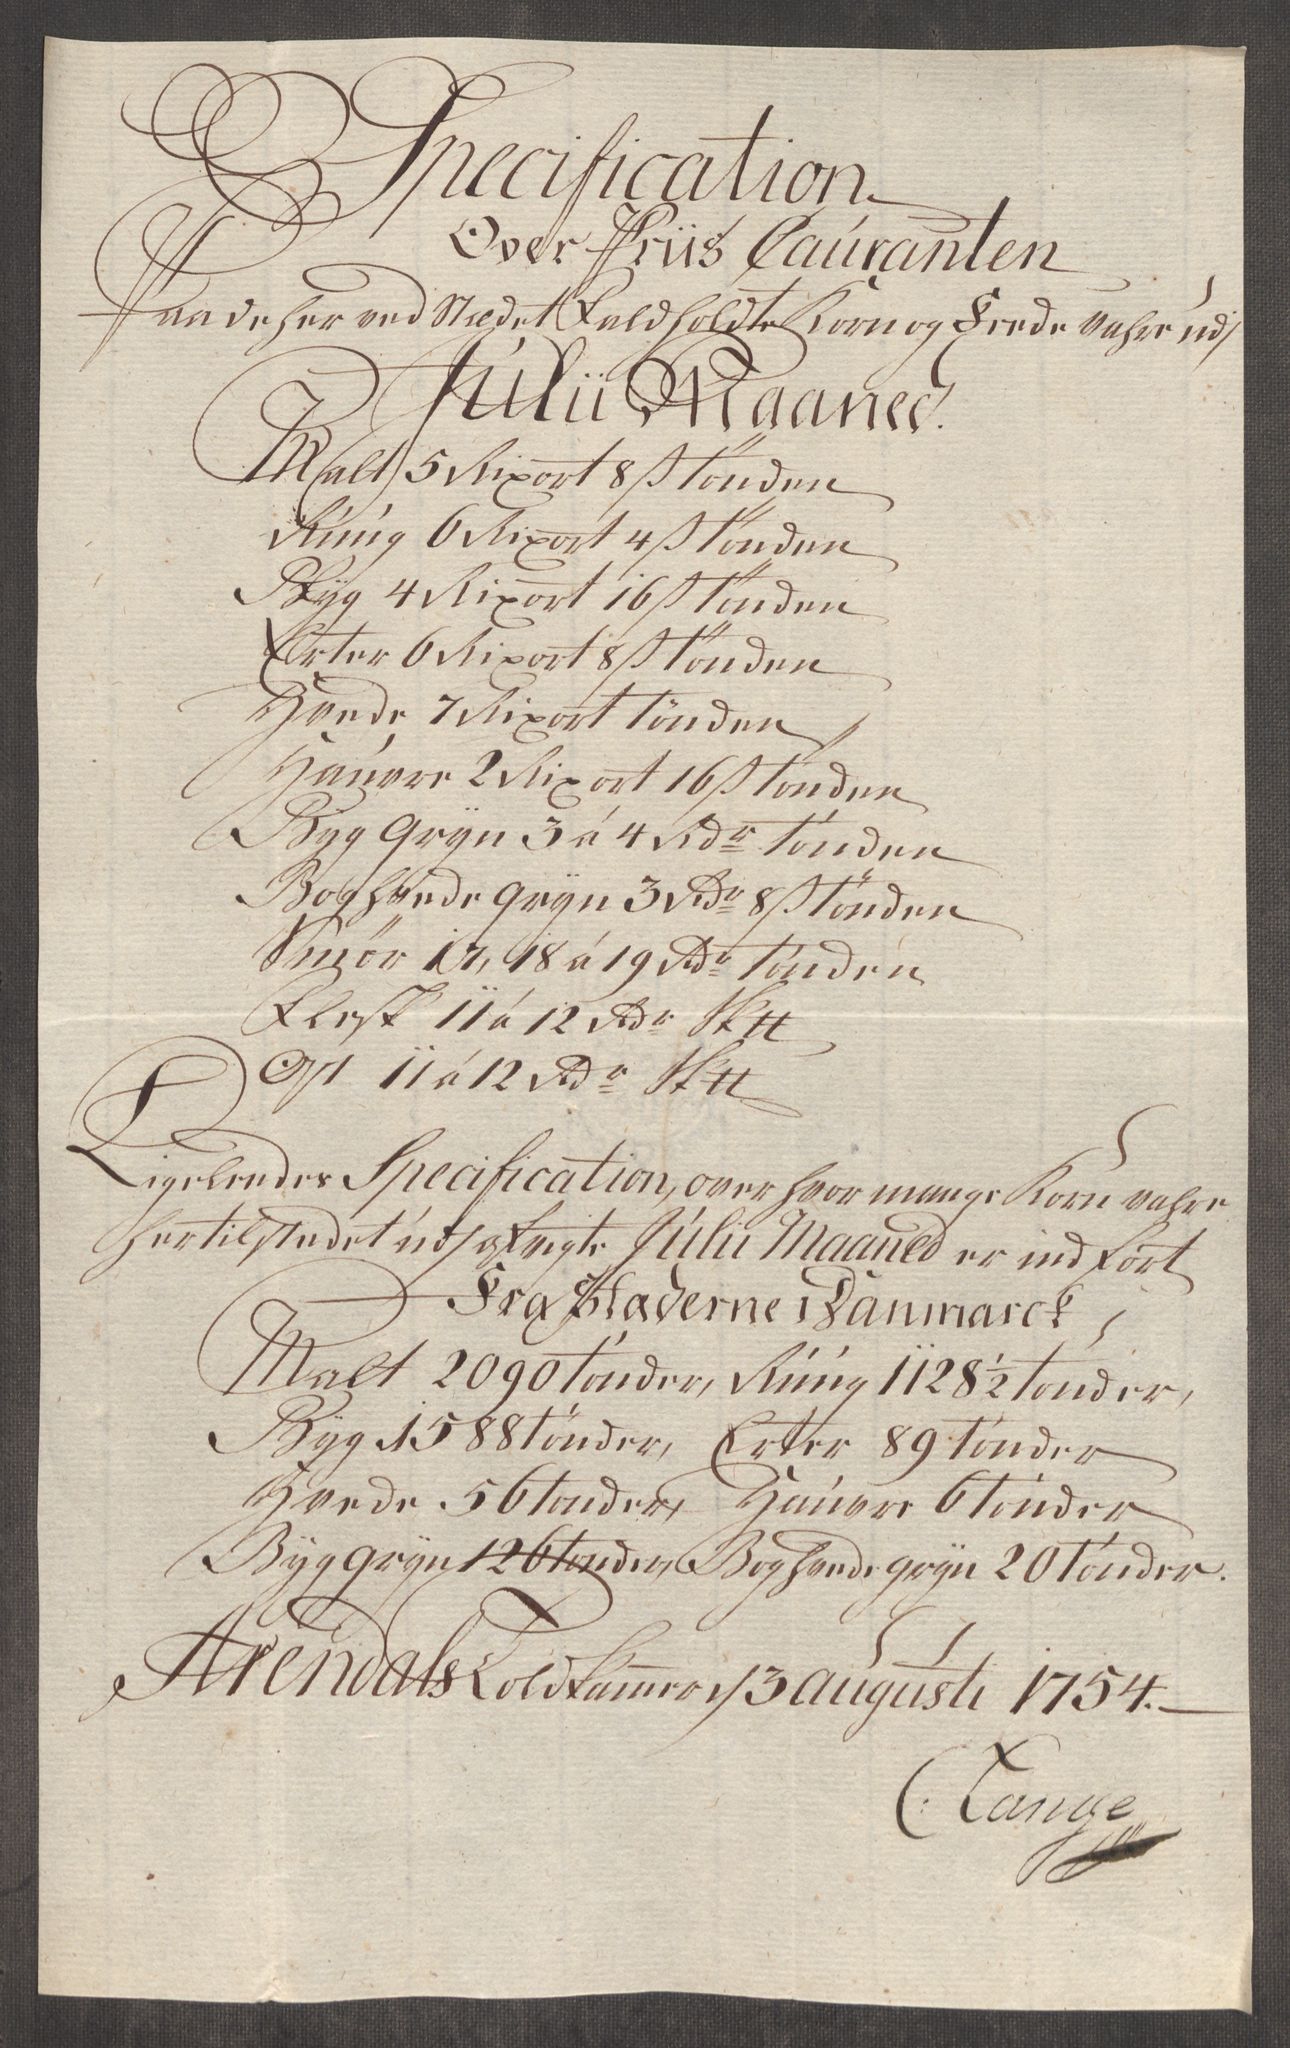 Specification
Over Priis Couranten
Paa de her ved Stædet Faldholdte Korn og Fede vahre udj
Julii Maaned.
Malt 5 Rixort 8 ß tønden
Rúúg 6 Rixort 4 ß tönden
Byg 4 Rixort 16 ß tönden
Erter 6 Rixort 8 ß tönden
Hvede 7 Rixort tönden
Haúvre 2 Rixort 16 ß tönden
Byg Gryn 3 á 4 Rdr tónden
Boghvede gryn 3 Rdr 8 ß tönden
Smör 17, 18 á 19 Rdr tónden
Flesk 11 á 12 Rdr Sk℔
Ost 11 á 12 Rdr Sk℔
Ligeleedes Specification, over hvor mange Korn vahre
her til stædet udj afvigte Júlii Maaned er ind fört
Fra Stæderne i Danmarck
Malt 2090 tónder, Rúúg 1128 1/2 tónder,
Byg 1588 tönder, Erter 89 tónder
Hvede 56 tonder, Haúvre 6 tónder
Byg gryn 126 tonder, Boghvede gryn 20 tónder.
Arendals Toldkammer d 3 aúgústi 1754.
C: Lange